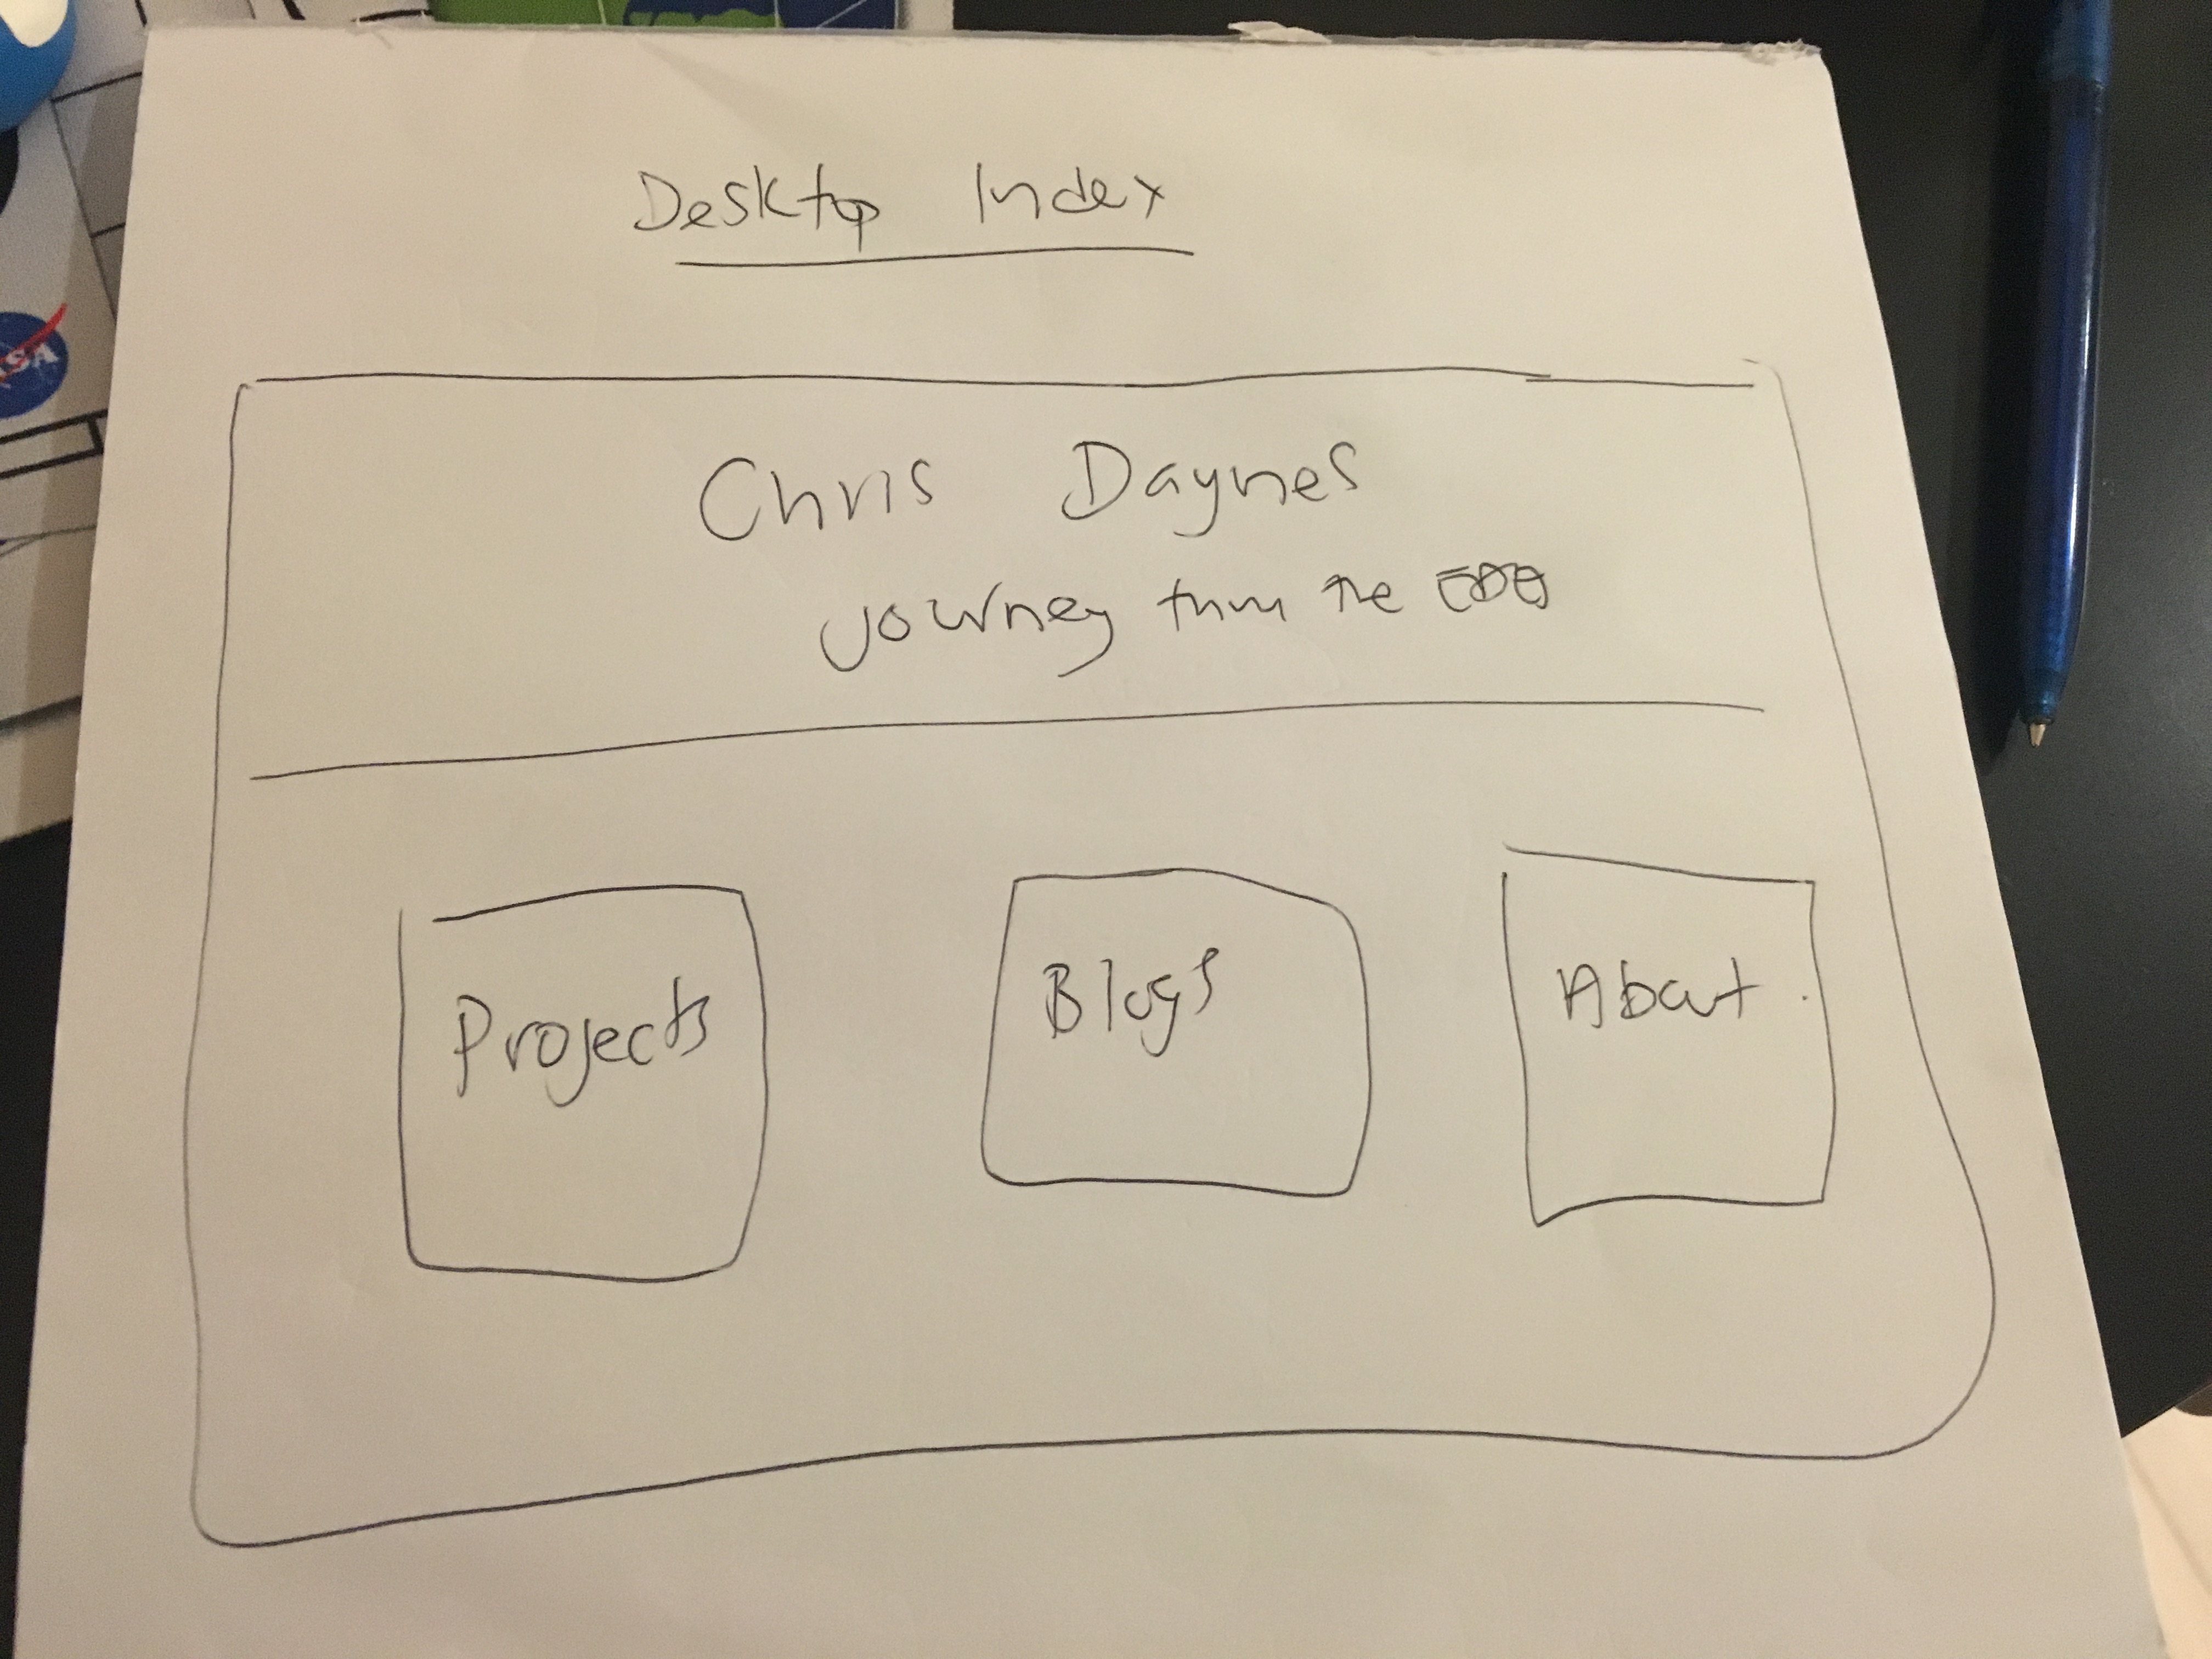 Desktop Index
Chris Daynes
Journey thru the
Projects
Blogs
About